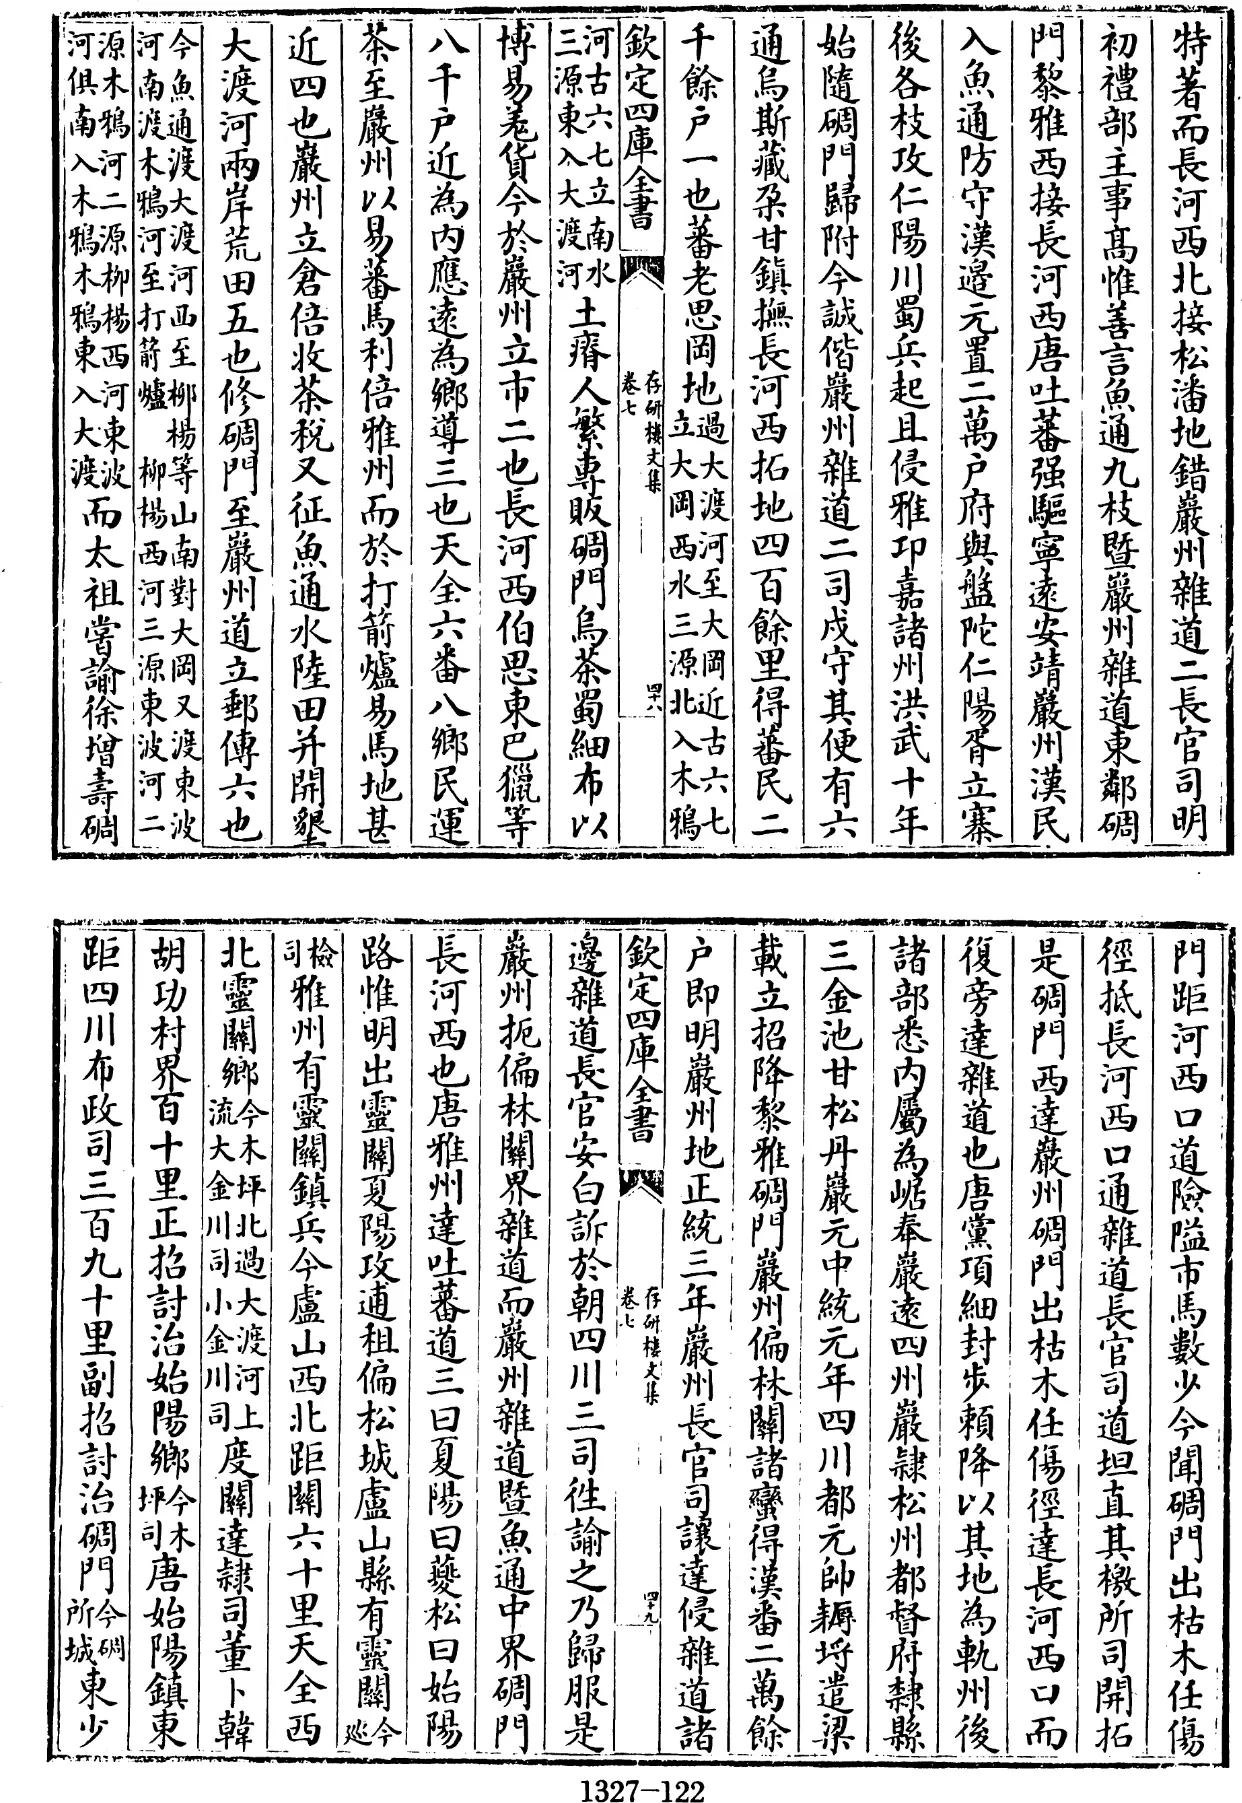 特著而長河西北接松潘地錯巖州雜道二長官司明
初禮部主事高惟善言魚通九枝暨巖州雜道東鄰碉
門黎雅西接長河西唐吐蕃强驅寧遠安靖巖州漢民
入魚通防守漢邉元置二萬户府與盤陀仁陽胥立寨
後各枝攻仁陽川蜀兵起且侵雅卭嘉諸州洪武十年
始隨碉門歸附今誠偕巖州雜道二司戍守其便有六
通烏斯藏朶甘鎮撫長河西拓地四百餘里得蕃民二
千餘户一也蕃老思岡地過大渡河至大岡近古六七立大岡西水三源北入木鴉
欽定四庫全書
存研樓文集
卷七
四十八
河古六七立南水三源東入大渡河土瘠人繁專販碉門烏茶蜀細布以
博易羗貨今於巖州立市二也長河西伯思東巴獵等
八千户近為内應遠為鄉導三也天全六番八鄉民運
茶至巖州以易蕃馬利倍雅州而於打箭爐易馬地甚
近四也巖州立倉倍收茶稅又征魚通水陸田并開墾
大渡河兩岸荒田五也修碉門至巖州道立郵傳六也
今魚通渡大渡河西至柳楊等山南對大岡又渡東波河南渡木鴉河至打箭爐 柳楊西河三源東波河二
源木鴉河二源柳楊西河東波河俱南入木鴉木鴉東入大渡而太祖嘗諭徐增壽碉
門距河西口道險隘市馬數少今聞碉門出枯木任傷
徑抵長河西口通雜道長官司道坦直其檄所司開拓
是碉門西達巖州碉門出枯木任傷徑達長河西口而
復旁達雜道也唐黨項細封步頼降以其地為軌州後
諸部悉内屬為崌奉巖遠四州巖隷松州都督府隸縣
三金池甘松丹巖元中統元年四川都元帥耨埒遣梁
載立招降黎雅碉門巖州偏林關諸蠻得漢番二萬餘
户即明巖州地正統三年巖州長官司讓達侵雜道諸
欽定四庫全書
存研樓文集
卷七
四十九
邊雜道長官安白訴於朝四川三司徃諭之乃歸服是
巖州扼偏林關界雜道而巖州雜道暨魚通中界碉門
長河西也唐雅州達吐蕃道三曰夏陽曰夔松曰始陽
路惟明出靈關夏陽攻逋租偏松城盧山縣有靈關今巡
檢司雅州有靈關鎮兵今盧山西北距關六十里天全西
北靈關鄉今木坪北過大渡河上流大金川司小金川司度關達隷司董卜韓
胡功村界百十里正招討治始陽鄉今木坪司唐始陽鎮東
距四川布政司三百九十里副招討治碉門今碉所城東少
1327—122